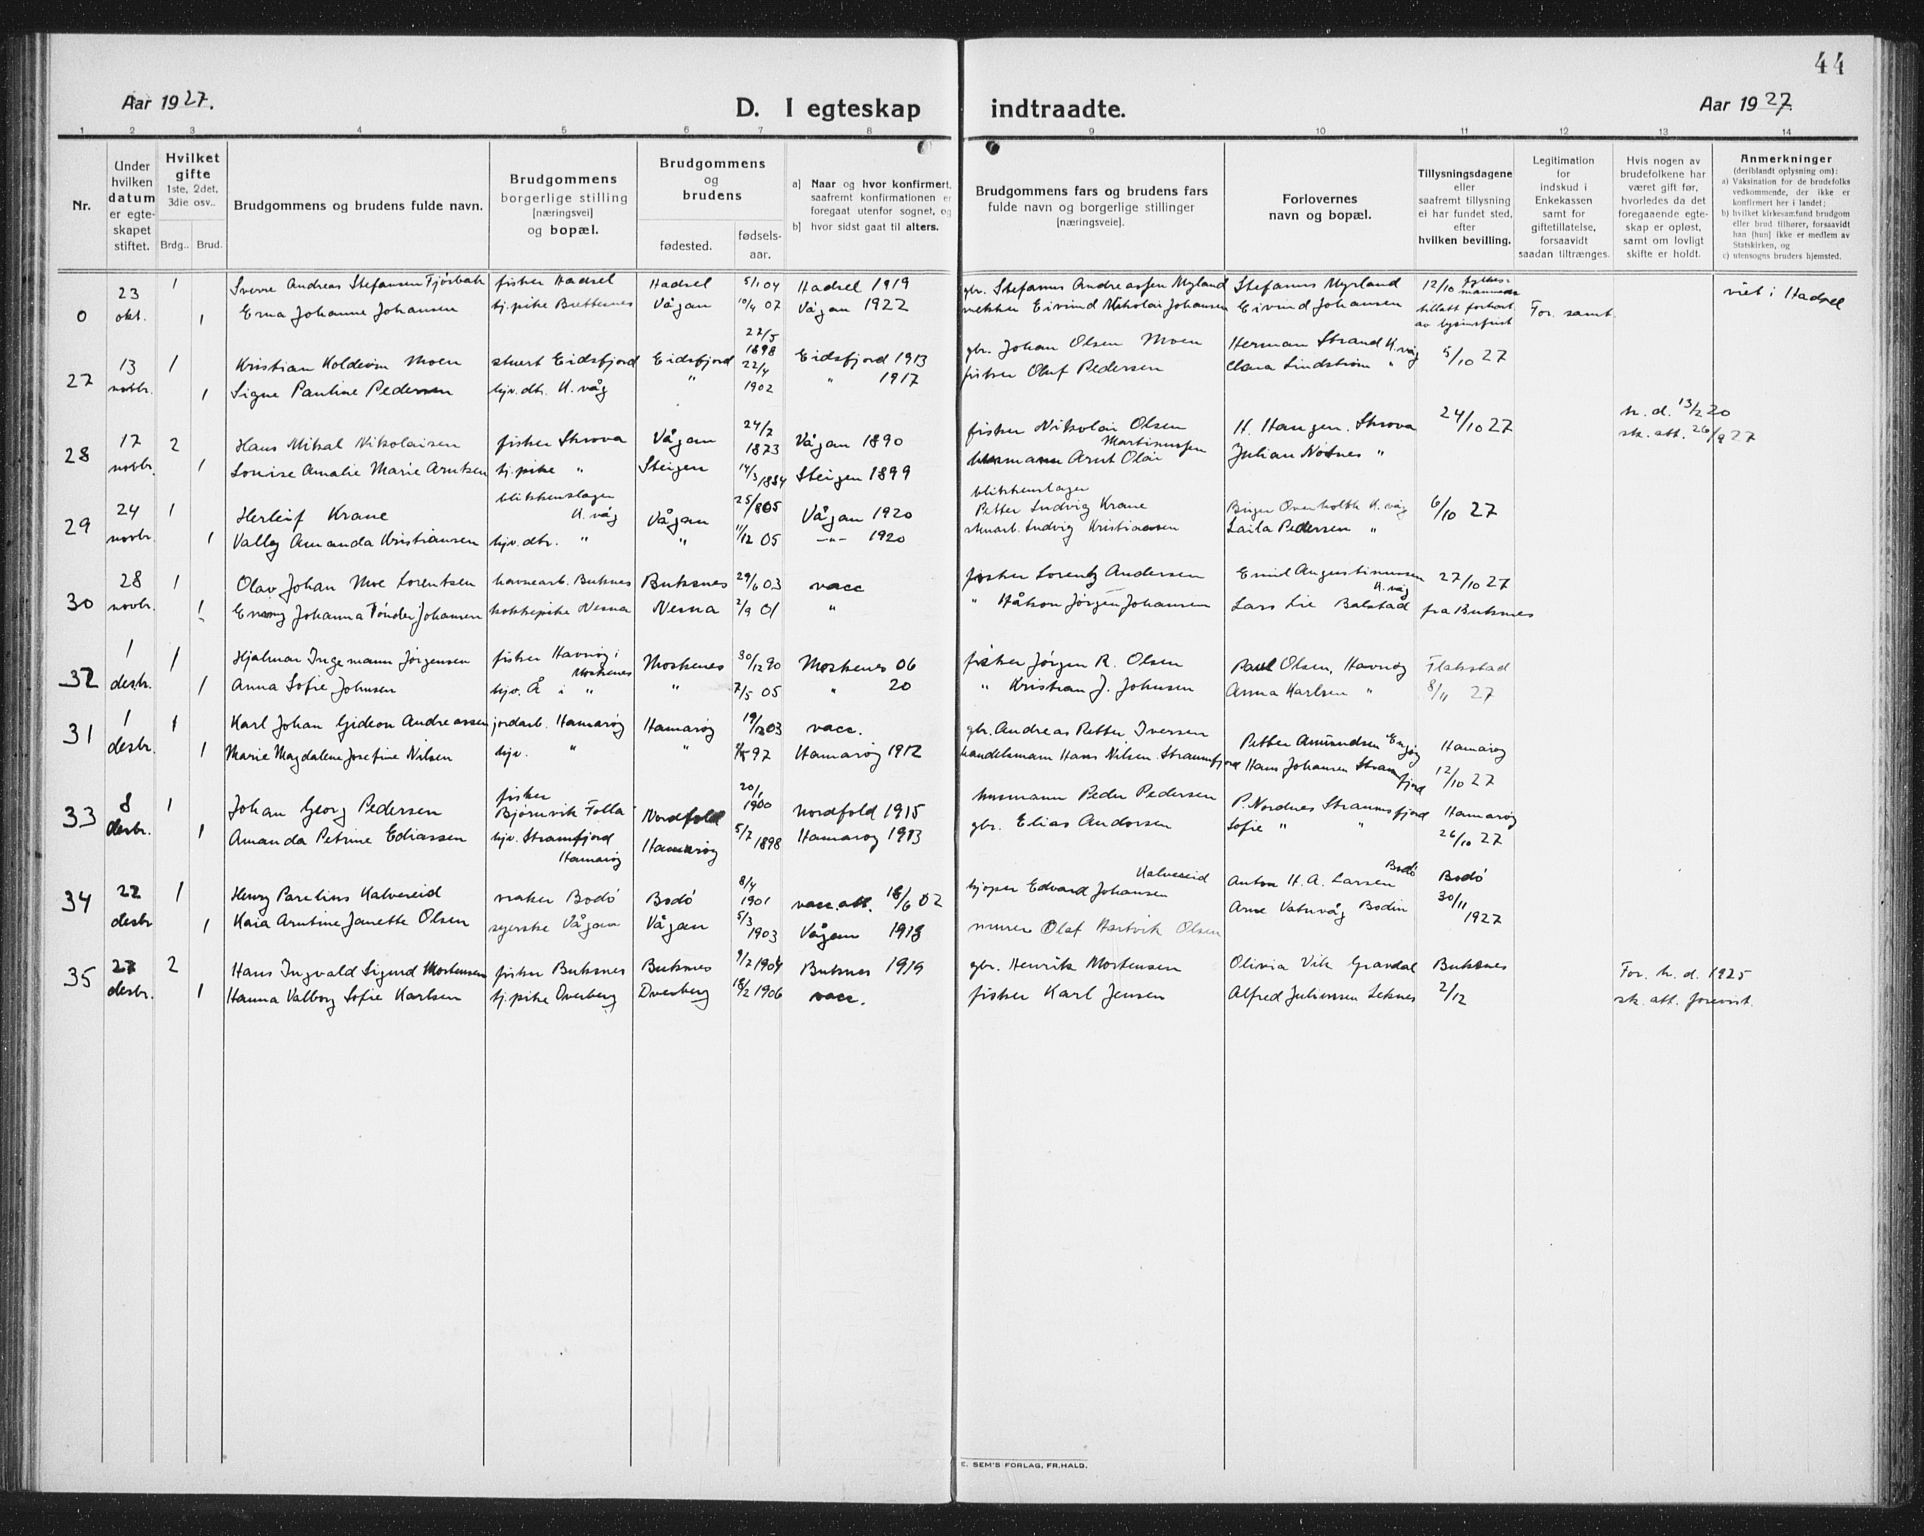 44
Aar 1927.
D. I egteskap indtraadte.
Aar 1927.
1 2 3 4 5 6 7 8 9 10 11 12 13 14
Nr.
Under hvilken datum er egteskapet stiftet.
Hvilket gifte 1ste, 2det, 3die osv..
Brdg.. Brud.
Brudgommens og brudens fulde navn.
Brudgommens borgerlige stilling [næringsvei] og bopæl.
Brudgommens og brudens
fødested. fødselsaar.
a) Naar og hvor konfirmert, saafremt konfirmationen er foregaat utenfor sognet, og
b) hvor sidst gaat til alters.
Brudgommens fars og brudens fars fulde navn og borgerlige stillinger [næringsveie].
Forlovernes navn og bopæl.
Tillysningsdagene eller saafremt tillysning ei har fundet sted, efter hvilken bevilling.
Legitimation for indskud i Enkekassen samt for giftetillatelse, forsaavidt saadan tiltrænges.
Hvis nogen av brudefolkene har været gift før, hvorledes da det foregaaende egteskap er opløst, samt om lovlig skifte er holdt.
Anmerkninger (deriblandt oplysning om):
a) Vaksination for de brudefolks vedkommende, der ikke er konfirmert her i landet;
b) hvilket kirkesamfund brudgom eller brud tilhører, forsaavidt han [hun] ikke er medlem av Statskirken, og
c) utensogns bruders hjemsted.
23 1 Sverre Andreas Stefansen Fjørbak fisker Hadsel Hadsel 5/1 04 Hadsel 1919 gbr. Stefanus Andreassen Myrland Stefanus Myrland 12/10 fylkesmannens viet i Hadsel
0 okt. 1 Erna Johanne Johansen tj.pike Brettesnes Vågan 10/4 07 Vågan 1922 Eivind Nikolai Johansen Eivind Johansen tillatt forkort. av lysnfrist For. samt.
13 1 Kristian Koldevin Moen stuert Eidsfjord Eidsfjord 22/5 1898 Eidsfjord 1913 gbr. Johan Olsen Moen Herman Strand K.våg 5/10 27
27 novbr. 1 Signe Pauline Pedersen hjv. dtr. K.våg " 22/4 1902 " 1917 fisker Oluf Pedersen Clara Lindstrøm "
17 2 Hans Mikal Nikolaisen fisker Skrova Vågan 24/2 1873 Vågan 1890 fisker Nikolai Olsen H. Haugen, Skrova 24/10 27 h. d. 13/2 20
28 novbr. 1 Louise Amalie Marie Arntsen tj.pike " Steigen 14/3 1884 Steigen 1899 Arnt Olai Martinussen Julian Nösnes " sk. att. 26/9 27
24 1 Herleif Krane blikkenslager K.våg Vågan 25/8 05 Vågan 1920 blikkenslager Petter Ludvig Krane K.våg 6/10 27
29 novbr. 1 Valley Amanda Kristiansen hjv. dtr. " " 11/12 05 —"— 1920 Ludvig Kristiansen Laila Pedersen "
28 1 Olav Johan Moe Lorentsen havnearb. Buksnes Buksnes 29/6 03 vacc fisker Lorentz Andersen Emil Augustinussen K.våg 27/10 27
30 novbr. 1 Johanna Tønder Johansen kokkepike Nesna Nesna 2/9 01 " " Håkon Jørgen Johansen Lars Lie Balstad fra Buksnes
1 1 Hjalmar Ingemann Jørgensen fisker Havnøy i Moskenes Moskenes 30/12 90 Moskenes 06 fisker Jørgen R. Olsen Paul Olsen, Havnøy Flakstad
32 desbr. 1 Anna Sofie Johnsen hjv. Å i " " 7/5 05 " 20 " Kristian J. Johnsen Anna Karlsen " 8/11 27
1 1 Karl Johan Gideon Andreassen jordarb. Hamarøy Hamarøy 19/12 03 vacc. gbr. Andreas Petter Iversen Petter Amundsen Hamarøy
31 desbr. 1 Marie Magdalene Josefine Nilsen hjv. " " 97 Hamarøy 1912 handelsmann Hans Nilsen Straumfjord Hans Johansen Straumfjord 12/10 27
8 1 Johan Georg Pedersen fisker Bjørnvik Folla Nordfold 20/1 1900 Nordfold 1915 husmann Peder Pedersen P. Nordnes Straumsfjord Hamarøy
33 desbr. 1 Amanda Petrine Eliassen hjv. Straumfjord Hamarøy Hamarøy 5/7 1898 Hamarøy 1913 gbr. Elias Andersen Sofie " " 26/10 27
22 1 Henry Parelius Kalvereid maker Bodö Bodö 8/4 1901 vacc. att. 18/6 02 Edvard Johansen Kalvereid Anton H. A. Larsen Bodö Bodö
34 desbr 1 Kaia Arntine Janette Olsen syerske Vågan Vågan 5/3 1903 Vågan 1918 murer Olaf Hartvik Olsen Arne Vatnvåg Bodin 30/11 1927
27 2 Hans Ingvald Sigurd Mortensen fisker Buksnes Buksnes 9/7 1904 Buksnes 1919 gbr. Henrik Mortensen Olivia Vik Gravdal Buksnes For. h. d. 1925
35 desbr. 1 Hanna Valborg Sofie Karlsen tj.pike Dverberg Dverberg 18/2 1906 vacc. fisker Karl Jensen Alfred Juliussen Leknes 2/12 sk. att. forevist.
E. SEM'S FORLAG, FR.HALD.